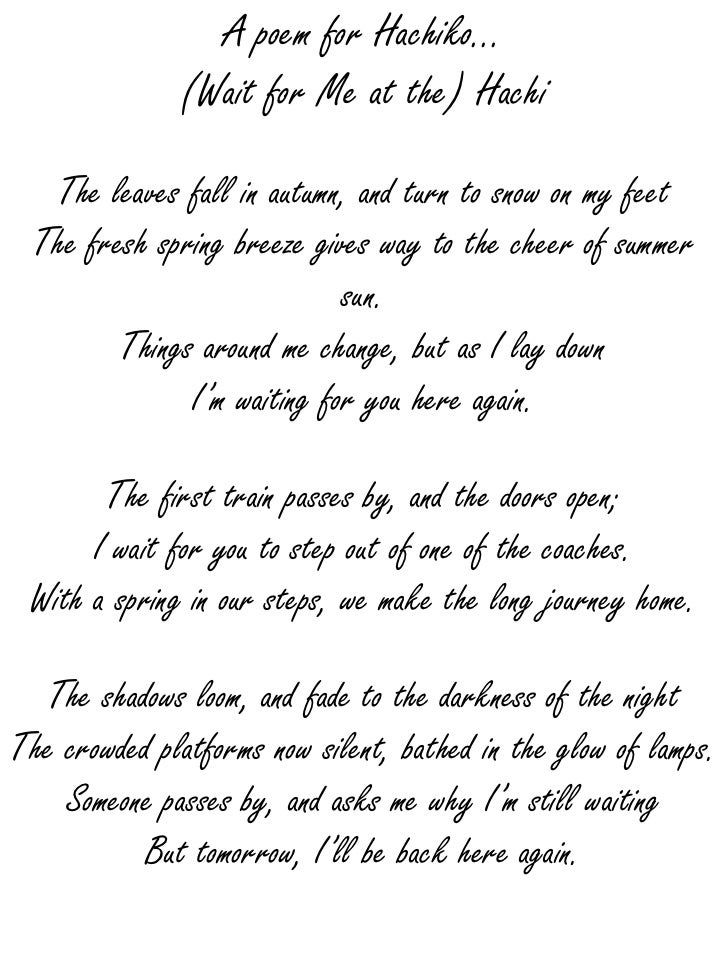 A poem for Hachiko...
(Wait for Me at the) Hachi
The leaves fall in autumn, and turn to snow on my feet
The fresh spring breeze gives way to the cheer of summer
sun.
Things around me change, but as I lay down
I'm waiting for you here again.
The first train passes by, and the doors open;
I wait for you to step out of one of the coaches.
With a spring in our steps, we make the long journey home.
The shadows loom, and fade to the darkness of the night
The crowded platforms now silent, bathed in the glow of lamps.
Someone passes by, and asks me why I'm still waiting
But tomorrow, I'll be back here again.